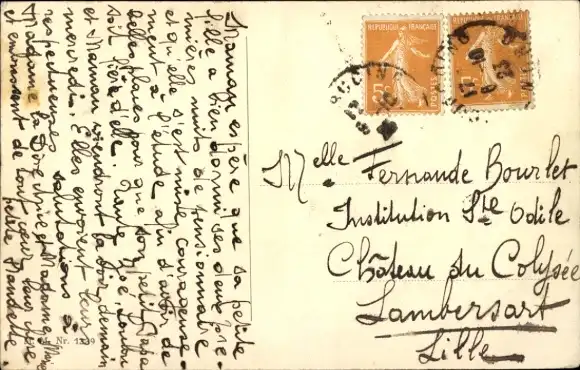 Maman espère que sa petite
fille a bien dormi ses deux pre-
mières nuits de pensionnaire
et qu'elle s'est mise courageuse-
ment à l'étude afin d'avoir de
belles places pour que son petit Papa
soit fier d'elle. Tante Zoé,
et Maman viendront la voir demain
mercredi. Elles envoient leurs
respectueuses salutations à
Madame la Directrice et Madame
et embrassent de tout cœur leur chère
petite
REPUBLIQUE FRANÇAISE
REPUBLIQUE FRANÇAISE
Melle Fernande Bourlet
Institution Ste Odile
Château du Colysée
Lambersart
Lille
Nr. 1339